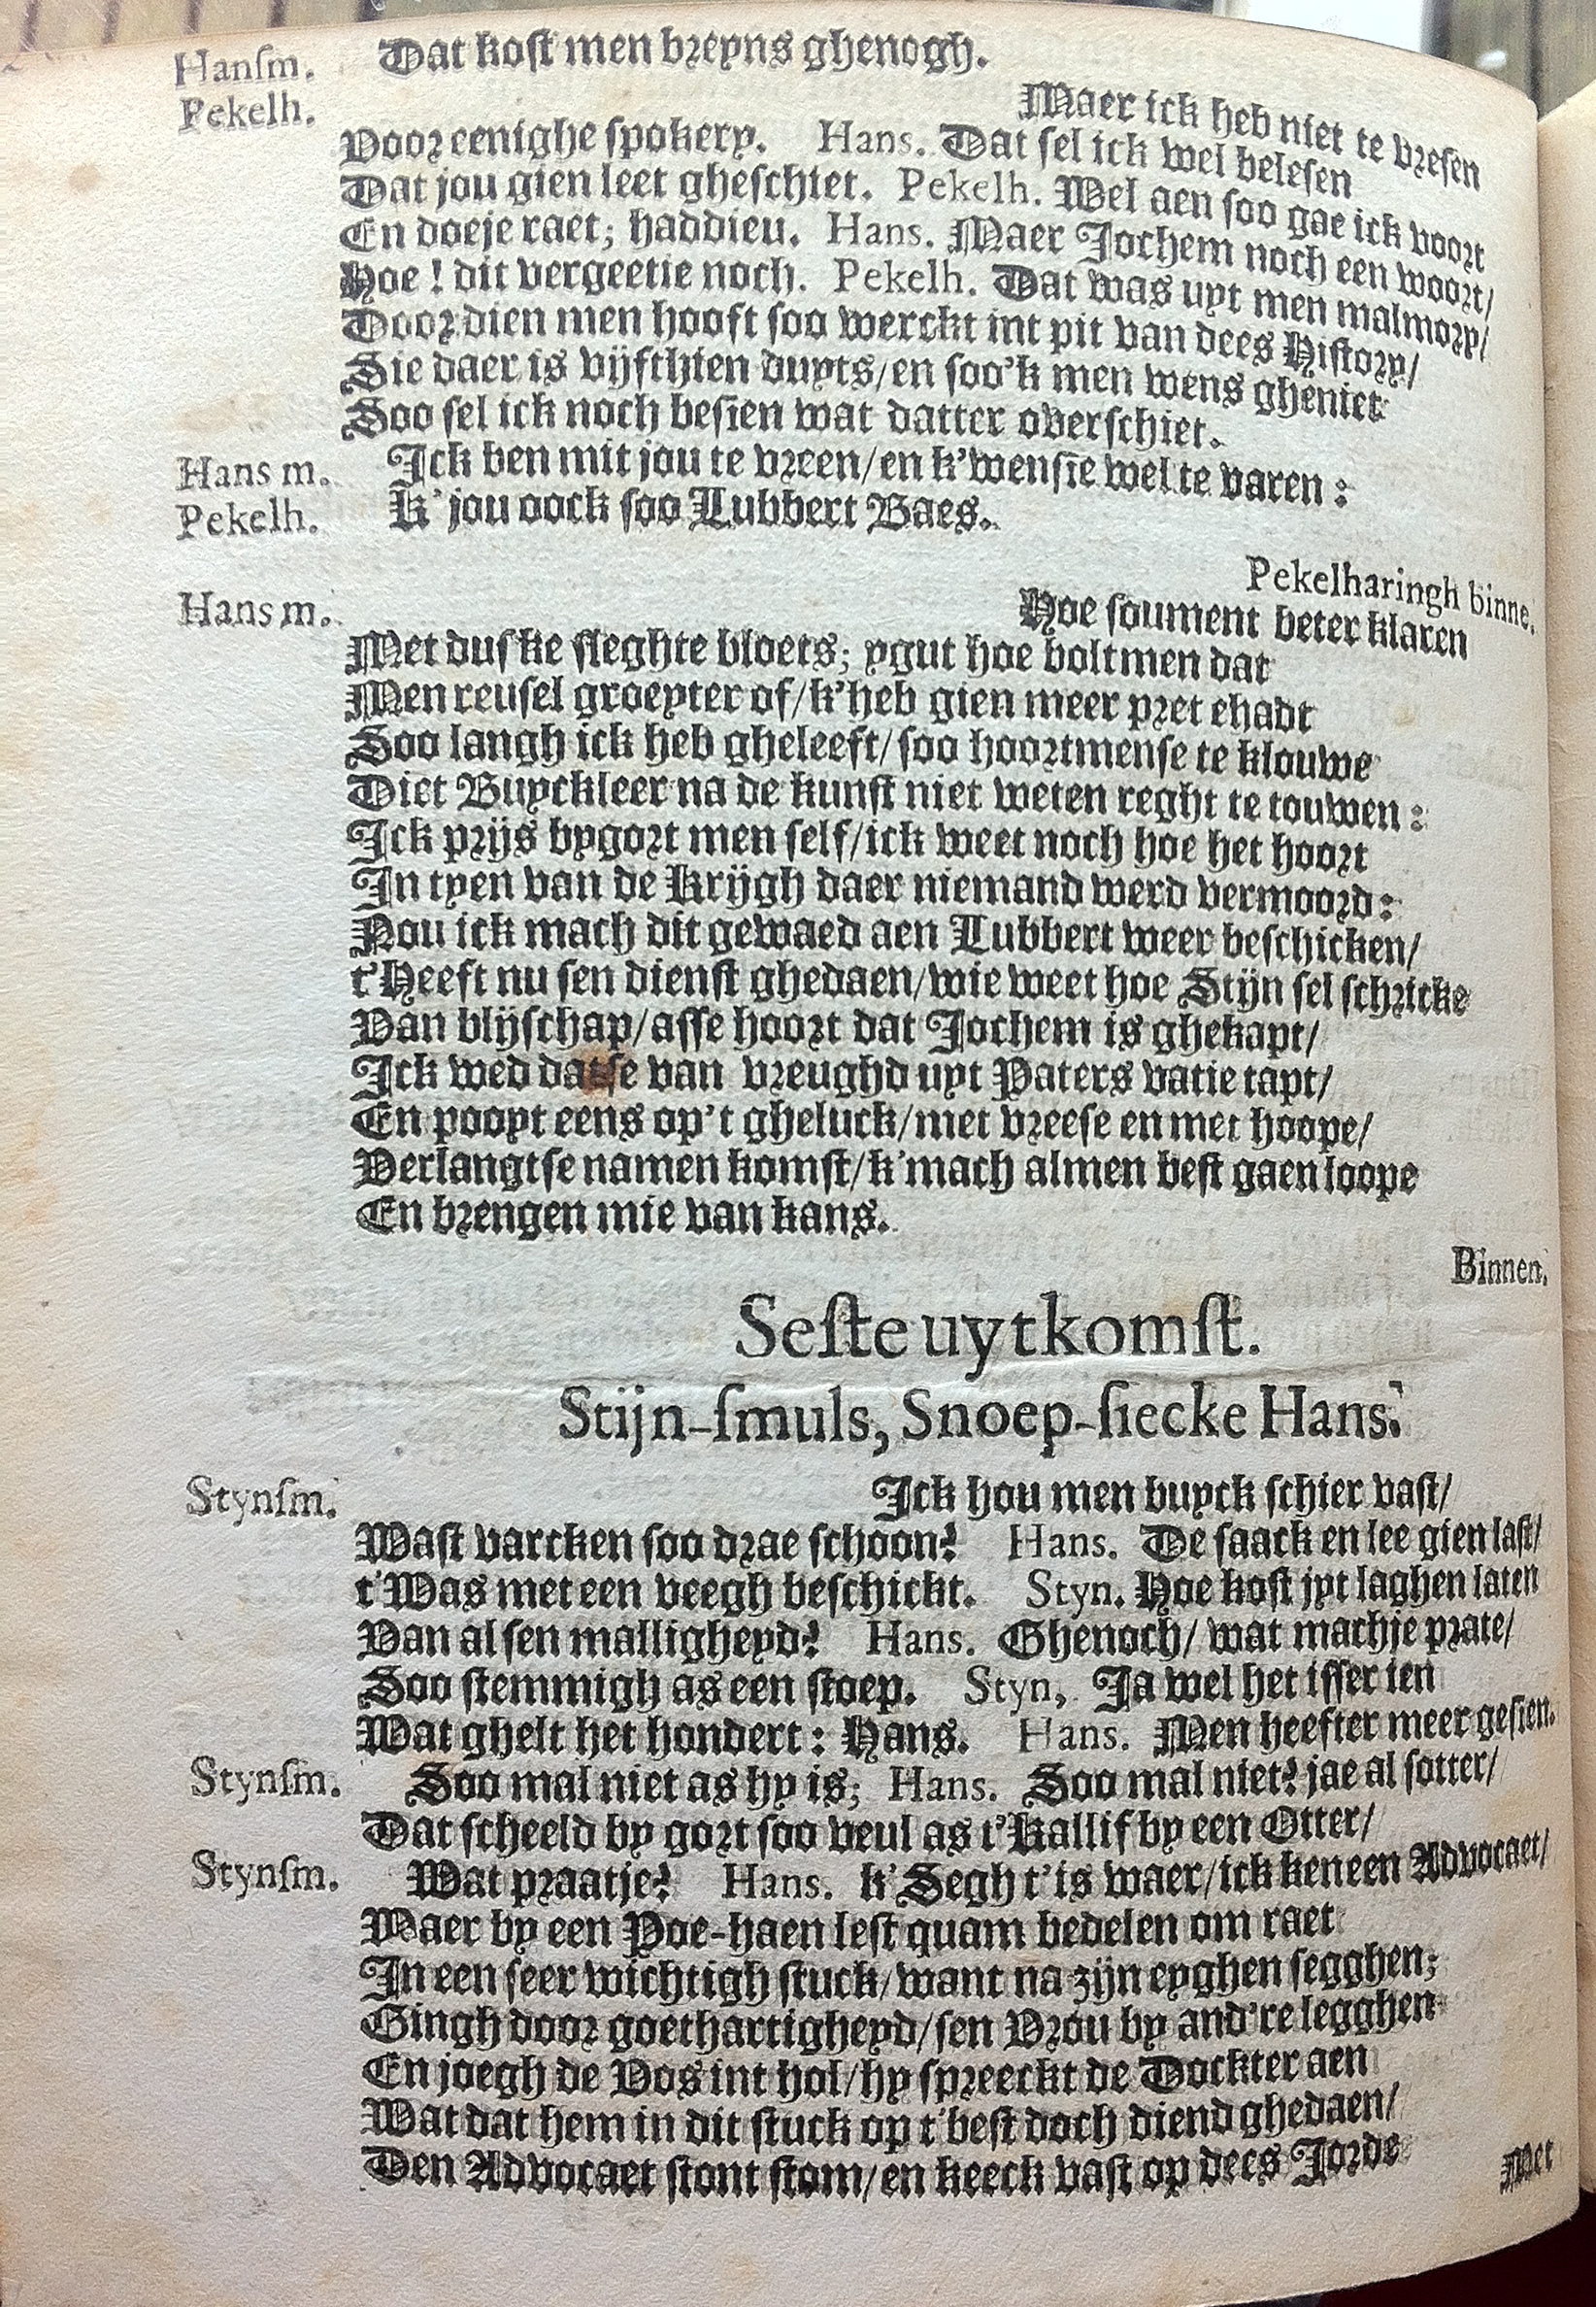 Hansm. Dat kost men breyns ghenogh.
Pekelh. Maer ick heb niet te vresen
Voor eenighe spokery. Hans. Dat sel ick wel belesen
Dat jou gien leet gheschiet. Pekelh. Wel aen soo gae ick voort
En doeje raet; haddieu. Hans. Maer Jochem noch een woort/
Hoe! dit vergeetje noch. Pekelh. Dat was uyt men malmory/
Door dien men hooft soo werckt int pit van dees History/
Sie daer is vijfthien duyts/en soo'k men wens gheniet
Soo sel ick noch besien wat datter overschiet.
Hans m. Ick ben mit jou te vreen/en k'wensje wel te varen:
Pekelh. K'jou oock soo Lubbert Baes.
Pekelharingh binne.
Hans m. Hoe soument beter klaren
Met duske sleghte bloets; ygut hoe boltmen dat
Men reusel groeyter of/k'heb gien meer pret ehadt
Soo langh ick heb gheleeft/soo hoortmense te klouwe
Diet Buyckleer na de kunst niet weten reght te touwen:
Ick prijs bygort men self/ick weet noch hoe het hoort
In tyen van de Krijgh daer niemand werd vermoord:
Nou ick mach dit gewaed aen Lubbert weer beschicken/
t'Heeft nu sen dienst ghedaen/wie weet hoe Stijn sel schricke
Van blijschap/asse hoort dat Jochem is ghekapt/
Ick wed datse van vreughd uyt Paters vatie tapt/
En pooyt eens op't gheluck/met vreese en met hoope/
Verlangtse namen komst/k'mach almen best gaen loope
En brengen mie van kans.
Binnen.
Seste uytkomst.
Stijn-smuls, Snoep-siecke Hans.
Stynsm. Ick hou men buyck schier vast/
Wast varcken soo drae schoon? Hans. De saack en lee gien last/
t'Was met een veegh beschickt. Styn. Hoe kost jyt laghen laten
Van al sen malligheyd? Hans. Ghenoch/ wat machje prate/
Soo stemmigh as een stoep. Styn, Ja wel het isser ien
Wat ghelt het hondert: Hans. Hans. Men heefter meer gesien.
Stynsm. Soo mal niet as hy is; Hans. Soo mal niet? jae al sotter/
Dat scheeld by gort soo veul as t'Kallif by een Otter/
Stynsm. Wat praatje? Hans. k'Segh t'is waer/ick ken een Advocaet/
Waer by een Poe-haen lest quam bedelen om raet
In een seer wichtigh stuck/want na zijn eyghen segghen;
Gingh door goethartigheyd/sen Vrou by and're legghen
En joegh de Vos int hol/hy spreeckt de Dockter aen
Wat dat hem in dit stuck op t'best doch diend ghedaen/
Den Advocaet stont stom/en keeck vast op dees Jorde
Met